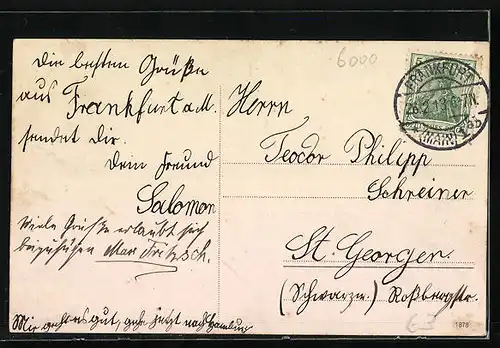 Die besten Grüße
aus Frankfurt a. M.
sendet Dir.
Dein Freund
Salomon
Viele Grüße erlaubt sich
beizufügen Max Fritzsch.
Mir geht es gut, gehe jetzt nach Hamburg
6000
FRANKFURT
(MAIN)
Herrn
Teodor Philipp
Schreiner
St. Georgen
(Schwarzw.)
63
1878